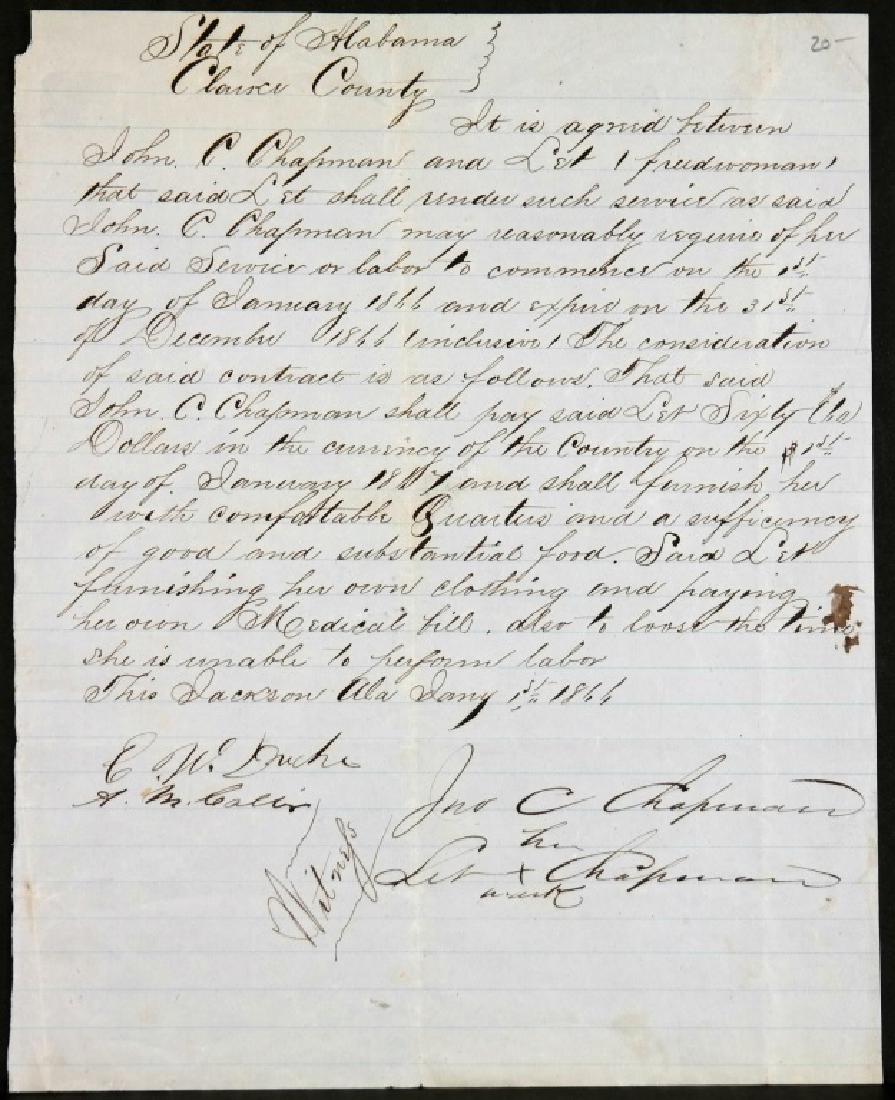 20-
State of Alabama }
Clarke County }
It is agreed between
John. C. Chapman and Let (freedwoman)
that said Let shall render such service as said
John. C. Chapman may reasonably require of her
Said Service or labor to commence on the 1st
day of January 1866 and expire on the 31st
of December 1866 (inclusive) The consideration
of said contract is as follows. That said
John. C. Chapman shall pay said Let Sixty
Dollars in the currency of the Country on the 1st
day of. January 1867 and shall furnish her
with comfortable Quarters and a sufficency
of good and substantial food. Said Let
furnishing her own clothing and paying
her own Medical bill. also to loose the time
she is unable to perform labor
This Jackson Ala Jany 1st 1866
C. W.
A. M.
Witness
Jno C Chapman
her
Let + Chapman
mark